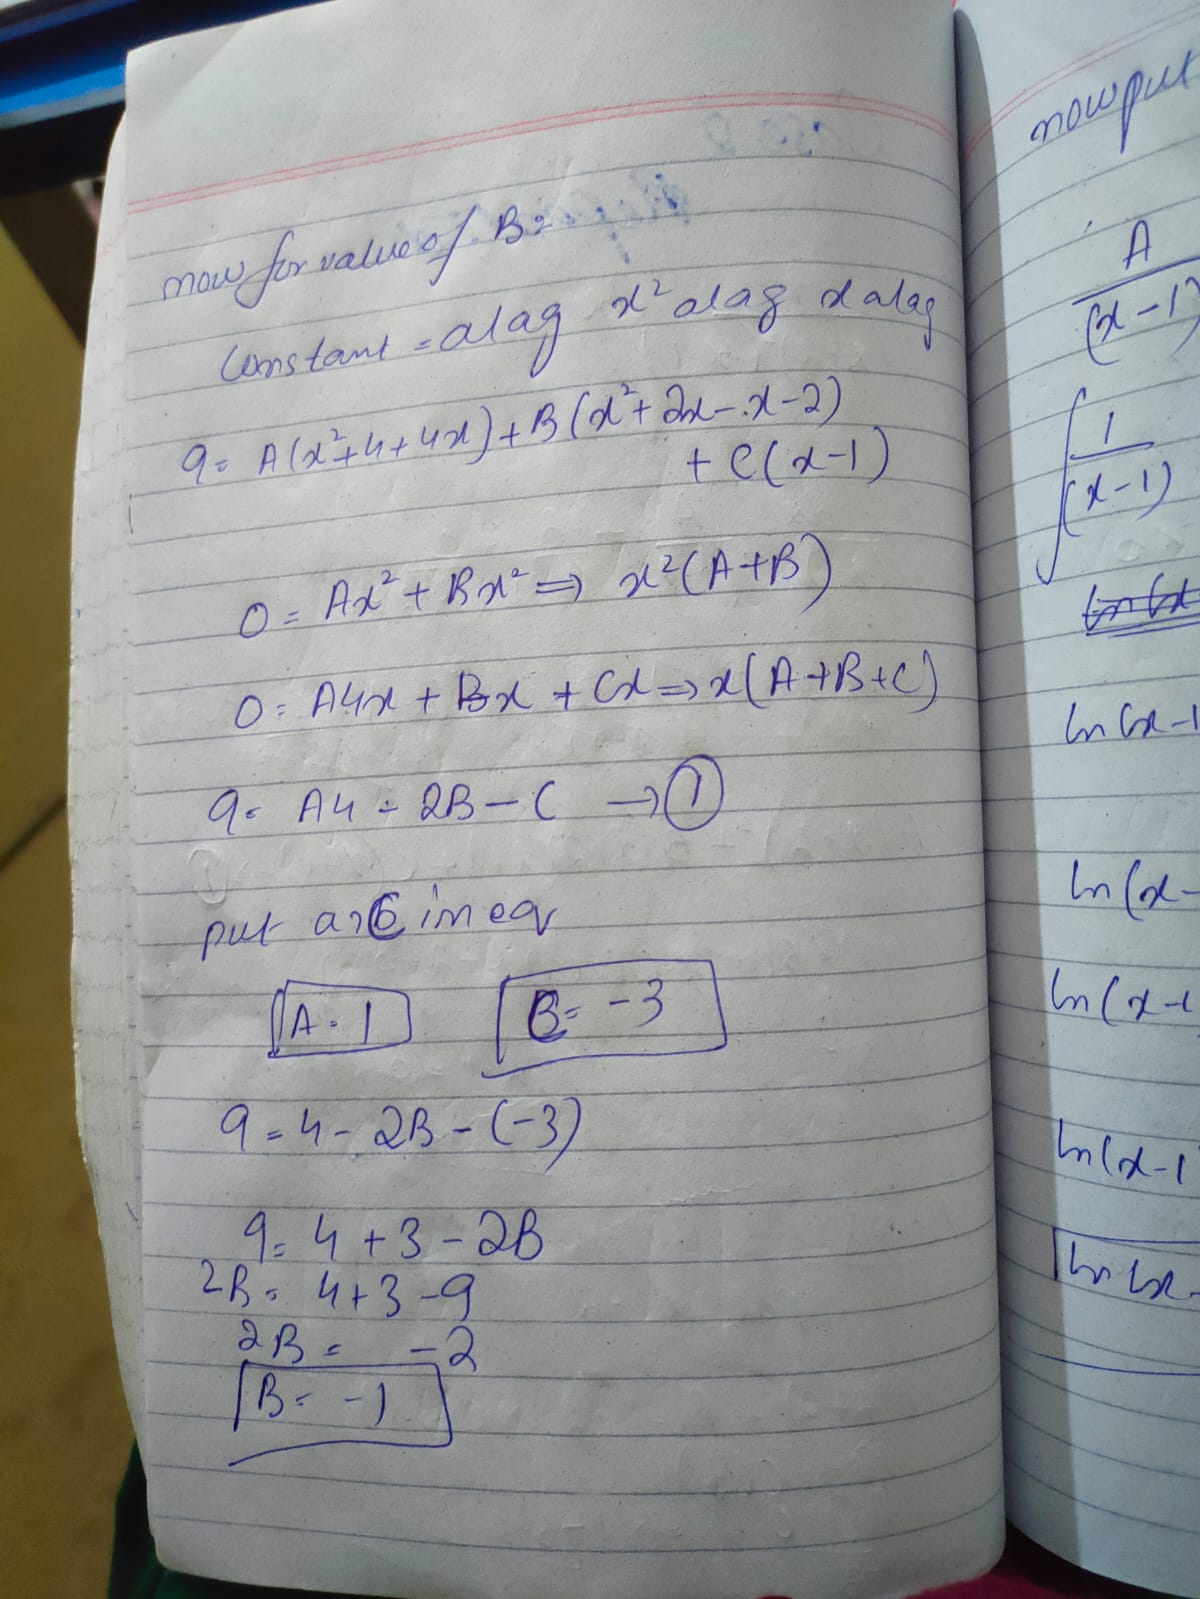 now for value of B=
Constant = alag x² alag x alag
9= A(x²+4+4x)+B(x²+2x-x-2)
+ C(x-1)
0 = Ax² + Bx² ⇒ x²(A+B)
0 = A4x + Bx + Cx ⇒ x(A+B+C)
9= A4 - 2B - C → ①
put a,C in eq
A = 1
C = -3
9 = 4 - 2B - (-3)
9 = 4 + 3 - 2B
2B = 4+3-9
2B = -2
B = -1
now put
A
(x-1)
∫ 1
(x-1)
ln (x-1
ln (x-
ln (x-1
ln (x-1
ln (x-